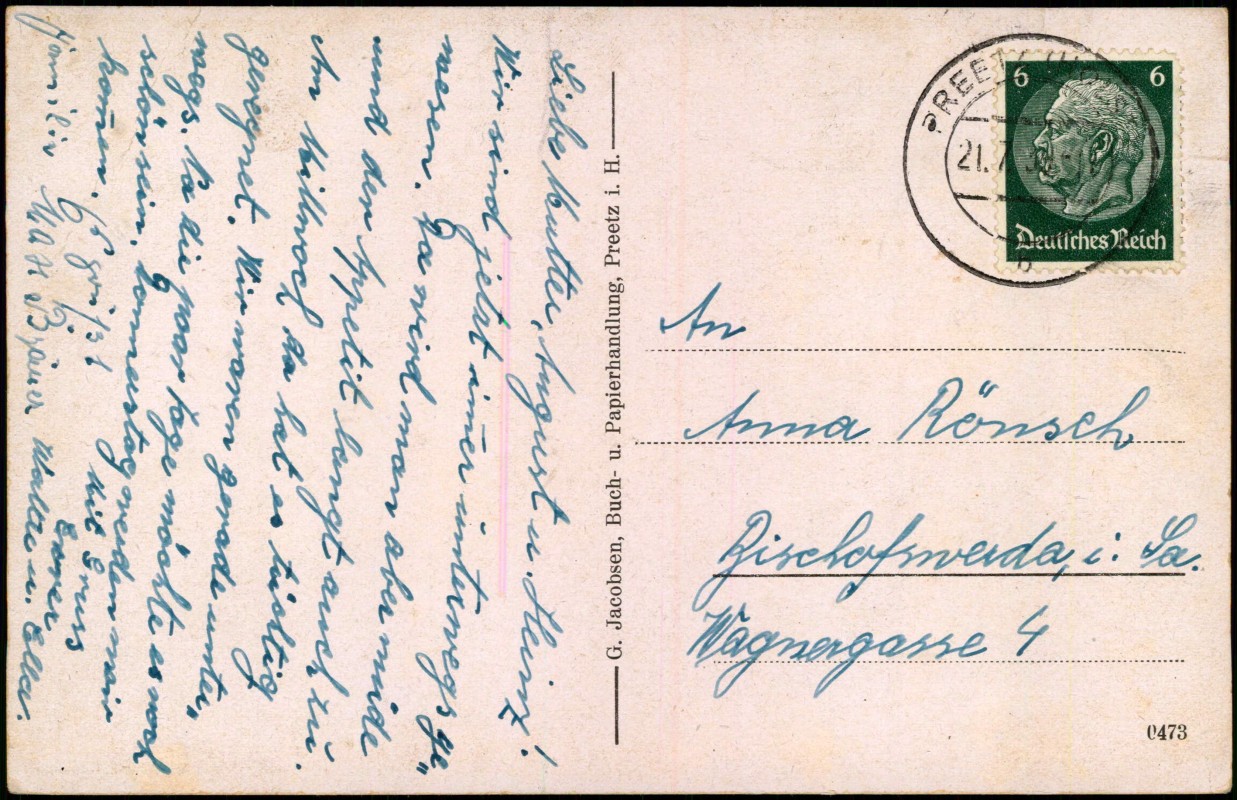 Liebe Mutter, August u. Heinz!
Wir sind jetzt im̄er unterwegs ge„
wesen. Da wird man aber müde
und der Appetit langt auch zu.
Am Mittwoch da hat es tüchtig
geregnet. Wir waren gerade unter„
wegs. Na die paar Tage möchte es noch
schön sein. Donnerstag werden wir
kom̄en. Es grüßt
Mit Gruss
Euer
Familie Max Bräuer Walter u. Ella.
G. Jacobsen, Buch- u. Papierhandlung, Preetz i. H.
PREETZ
21.7.
b
6 6
Deutsches Reich
An
Anna Rönsch
Bischofswerda, i. Sa.
Wagnergasse 4
0473